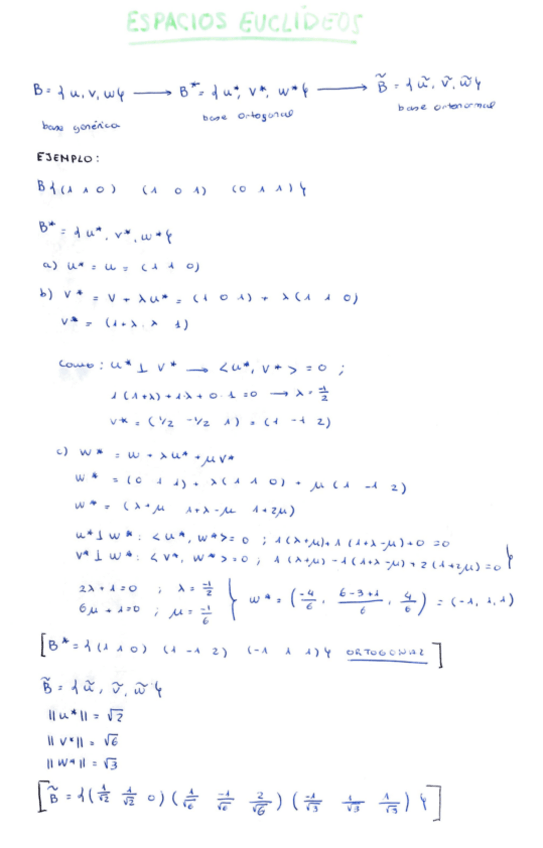 ESPACIOS EUCLÍDEOS
B = { u, v, w } ⟶ B* = { u*, v*, w* } ⟶ B̃ = { ũ, ṽ, w̃ }
base genérica base ortogonal base ortonormal
EJEMPLO:
B { (1 1 0) (1 0 1) (0 1 1) }
B* = { u*, v*, w* }
a) u* = u = (1 1 0)
b) v* = v + λu* = (1 0 1) + λ(1 1 0)
v* = (1+λ, λ 1)
como: u* ⊥ v* ⟶ <u*, v*> = 0 ;
1(1+λ) + 1·λ + 0·1 = 0 ⟶ λ = -1/2
v* = (1/2 -1/2 1) = (1 -1 2)
c) w* = w + λu* + μv*
w* = (0 1 1) + λ(1 1 0) + μ(1 -1 2)
w* = (λ+μ 1+λ-μ 1+2μ)
u* ⊥ w* : <u*, w*> = 0 ; 1(λ+μ) + 1(1+λ-μ) + 0 = 0
v* ⊥ w* : <v*, w*> = 0 ; 1(λ+μ) - 1(1+λ-μ) + 2(1+2μ) = 0 }
2λ + 1 = 0 ; λ = -1/2
6μ + 1 = 0 ; μ = -1/6 } w* = (-4/6, 6-3+1/6, 4/6) = (-1, 1, 1)
[B* = { (1 1 0) (1 -1 2) (-1 1 1) } ORTOGONAL]
B̃ = { ũ, ṽ, w̃ }
||u*|| = √2
||v*|| = √6
||w*|| = √3
[B̃ = { (1/√2 1/√2 0) (1/√6 -1/√6 2/√6) (-1/√3 1/√3 1/√3) }]